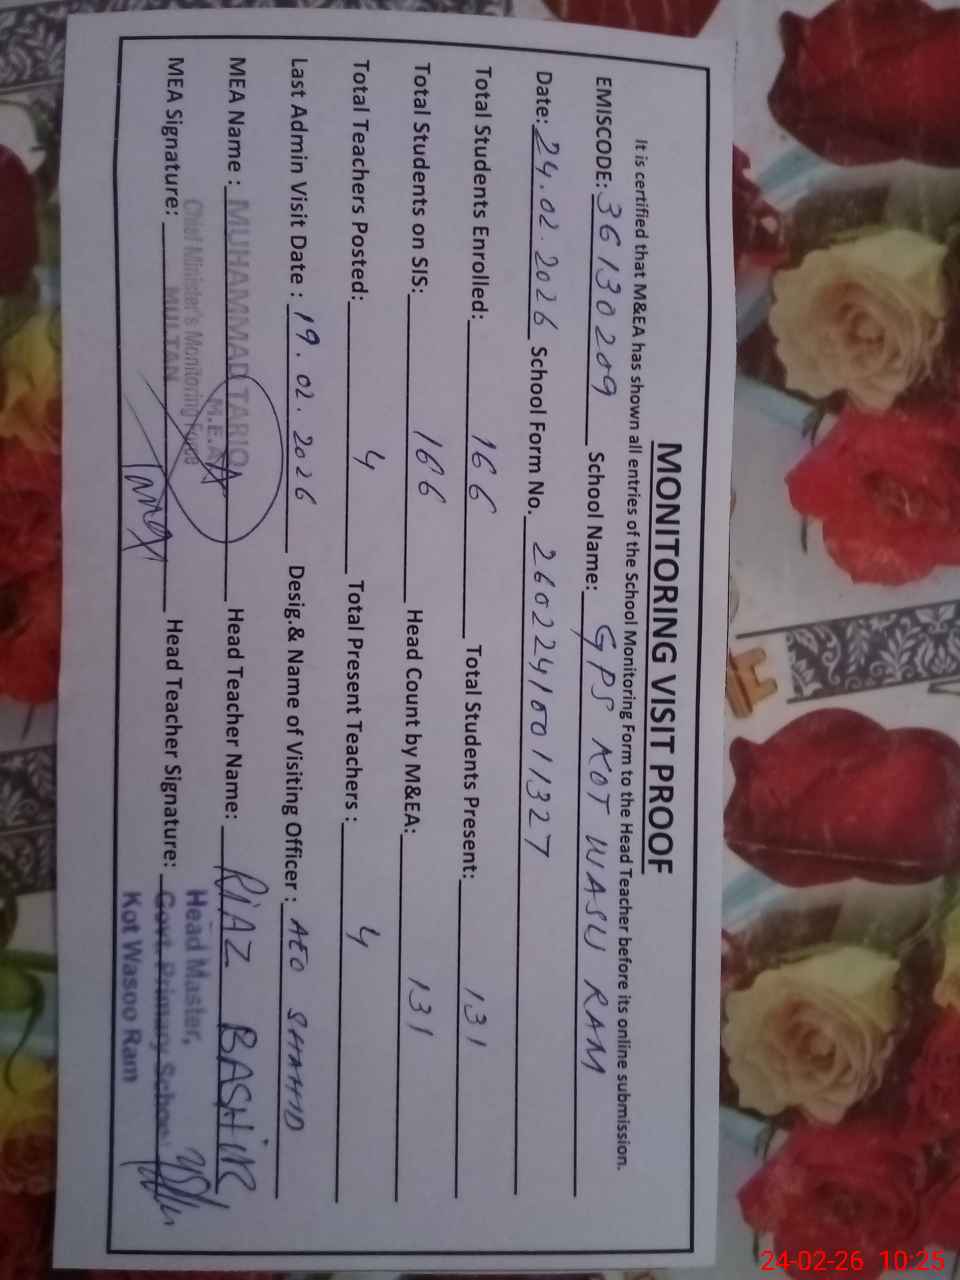 MONITORING VISIT PROOF
It is certified that M&EA has shown all entries of the School Monitoring Form to the Head Teacher before its online submission.
EMISCODE: 36130209 School Name: GPS KOT WASU RAM
Date: 24.02.2026 School Form No. 2602241001327
Total Students Enrolled: 166 Total Students Present: 131
Total Students on SIS: 166 Head Count by M&EA: 131
Total Teachers Posted: 4 Total Present Teachers : 4
Last Admin Visit Date : 19.02.2026 Desig.& Name of Visiting Officer : AEO SHAHID
MEA Name : MUHAMMAD TARIQ Head Teacher Name: RIAZ BASHIR
M.E.A
Chief Minister's Monitoring Force
MULTAN
MEA Signature: Head Teacher Signature:
Head Master,
Govt. Primary School
Kot Wasoo Ram
24-02-26 10:25